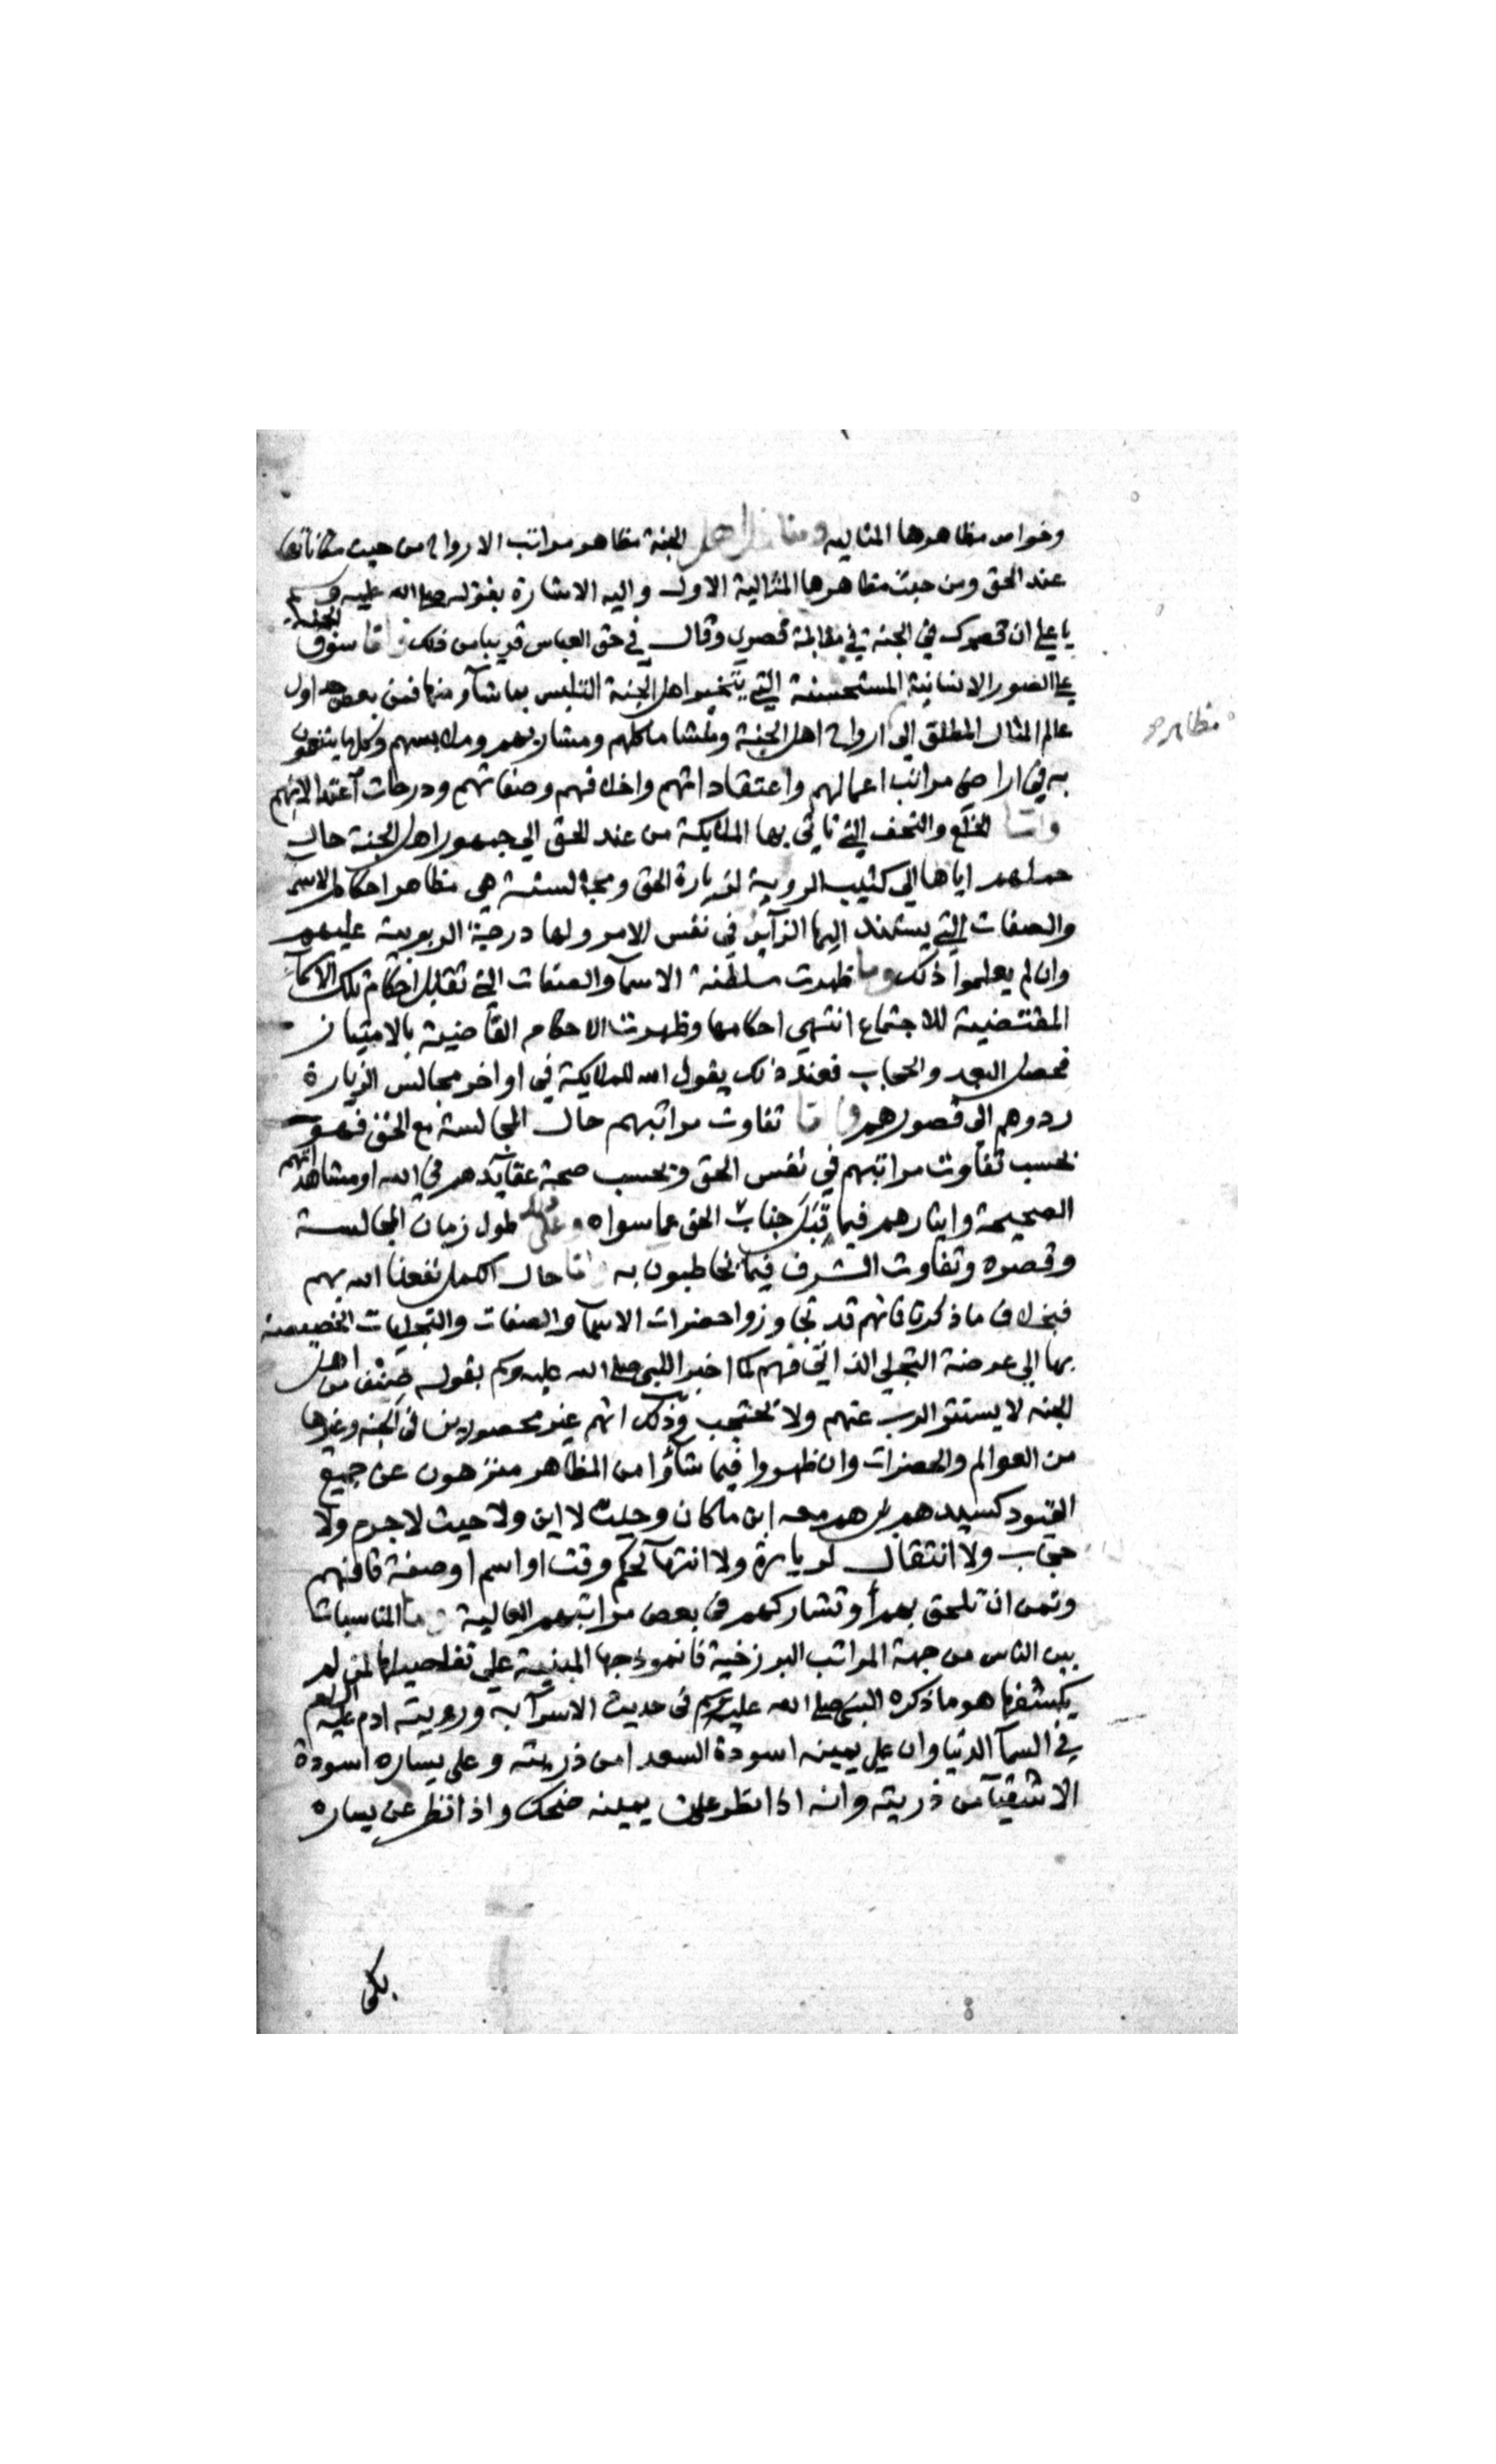 وخواص مظاهرها المثالية ومنازل اهل الجنة مظاهر مراتب الارواح من حيث مكاناتها
عند الحق ومن حيث مظاهرها المثالية الاول واليه الاشارة بقوله صلى الله عليه وسلم
يا علي ان قصرك في الجنة في مقابلة قصري وقال في حق العباس قريبا من ذلك واما سوق الجنة
على الصور الانسانية المستحسنة التي يتخير اهل الجنة التلبس بما شآو منها فمن بعض جداول
عالم المثال المطلق الى ارواح اهل الجنة ومنشا ماكلهم ومشاربهم وملابسهم وكلما يتنعمون
مظاهر
به في اراضي مراتب اعمالهم واعتقاداتهم واخلاقهم وصفاتهم ودرجات اعتدالاتهم
واما الخلع والتحف التي تاتي بها الملايكة من عند الحق الي جمهور اهل الجنة حال
حملهم اياها الي كثيب الروية لزيارة الحق ومجالسته هي مظاهر احكام الاسم
والصفات التي يستند اليها الزآير في نفس الامر ولها درجة الربوبية عليهم
وان لم يعلموا ذلك وما ظهرت سلطنة الاسمآ والصفات التي تقابل احكام تلك الاسمآ
المقتضية للاجتماع انتهي احكامها وظهرت الاحكام القاضية بالامتياز
فحصل البعد والحجاب فعند ذلك يقول الله للملايكة في اواخر مجالس الزيارة
ردوهم الى قصورهم واما تفاوت مراتبهم حال المجالسة مع الحق فهو
بحسب تفاوت مراتبهم في نفس الحق وبحسب صحة عقآيدهم في الله او مشاهداتهم
الصحيحة وايثارهم فيما قبل جناب الحق عما سواه طول زمان المجالسة
وقصره وتفاوت الشرف فيما يخاطبون به واما حال الكمل نفعنا الله بهم
فبخلاف ما ذكرنا فانهم قد تجاوزوا حضرات الاسمآ والصفات والتجليات الخصيصة
بها الي عرضة التجلي الذاتي فهم كما اخبر النبي صلى الله عليه وسلم بقوله صنف من اهل
الجنه لا يستتر الرب عنهم ولا يحتجب وذلك انهم غير محصورين في الجنه وغيرها
من العوالم والحضرات وان ظهروا فيما شآؤا من المظاهر منزهون عن جميع
القيود كسيدهم بل هم معه اين ما كان وحيث لا اين ولا حيث لا جرم ولا
حجاب ولا انتقال لزيارة ولا انتهآ لحكم وقت او اسم او صفة فافهم
وتمن ان تلحق بهم أو تشاركهم في بعض مراتبهم العالية واما المناسبات
بين الناس من جهة المراتب البرزخية فانموذجها المبنية على تفاصيلها لمن لم
يكشفها هو ما ذكره النبي صلى الله عليه وسلم في حديث الاسرآ به ورويته ادم عليه السلام
في السمآ الدنيا وان على يمينه اسودة السعدا من ذريته وعلى يساره اسودة
الاشقيآ من ذريته وانه اذا نظر عن يمينه ضحك واذا نظر عن يساره
بكى